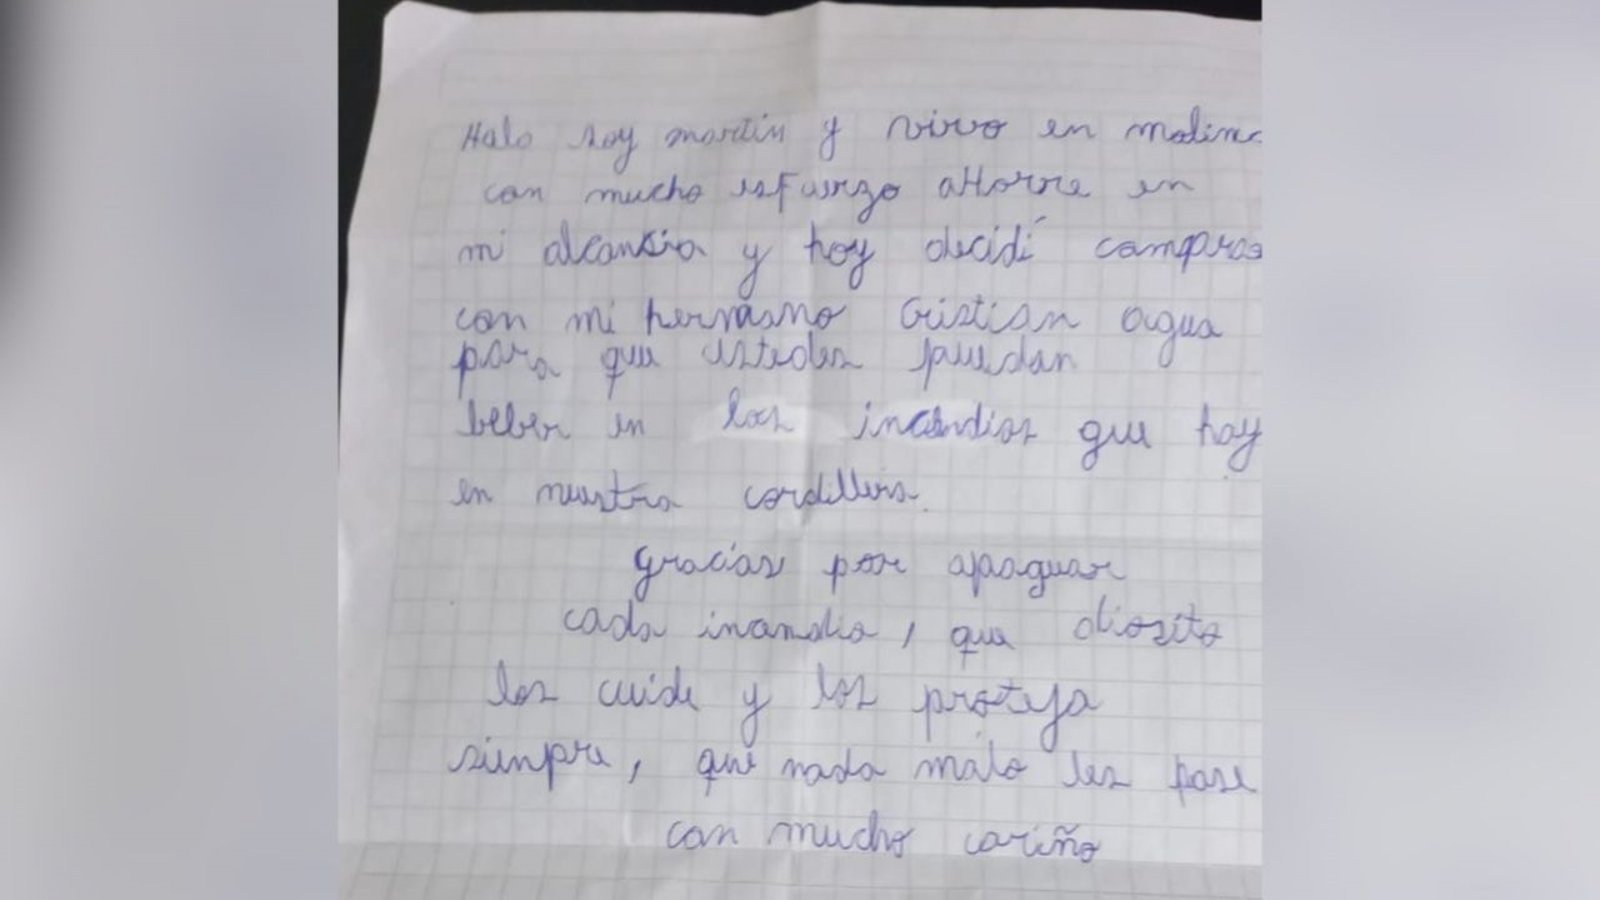 Halo soy martin y vivo en molina
con mucho esfuerzo aHorre en
mi alcansia y hoy decidí compras
con mi hermano Cristian agua
para que ustedes puedan
beber en los incendios que hay
en nuestra cordillera.
gracias por apaguar
cada incendio, que diosito
los cuide y los proteja
siempre, que nada malo les pase
con mucho cariño